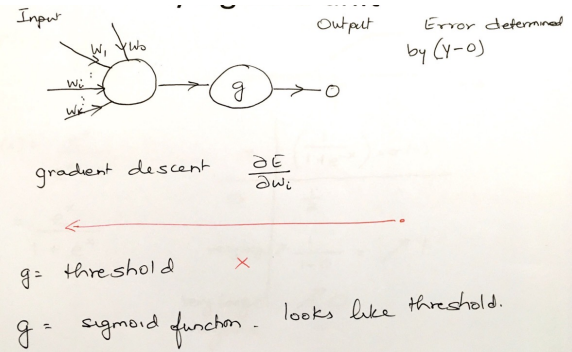 Input
Output
Error determined
by (Y-O)
W₁ W₀
Wi
g
O
Wk
gradient descent ∂E/∂Wi
g = threshold ×
g = sigmoid function - looks like threshold.